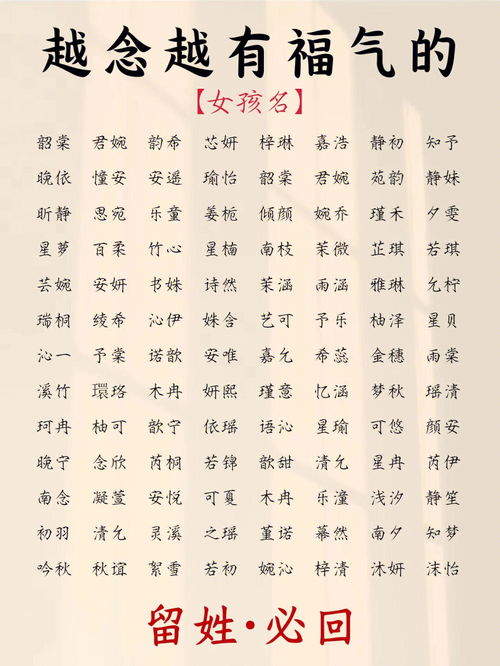 越念越有福气的
【女孩名】
韶棠 君婉 韵希 芯妍 梓琳 嘉浩 静初 知予
晚依 憧安 安遥 瑜怡 韶棠 君婉 苑韵 静妹
昕静 思宛 乐童 姜栀 倾颜 婉乔 瑾禾 夕雯
星萝 百柔 竹心 星柚 南枝 茉微 芷琪 若琪
芸婉 安妍 书姝 诗然 茉涵 雨涵 雅琳 乞柠
瑞桐 绫希 沁伊 姝含 艺可 予乐 柚泽 星贝
沁一 予棠 诺歆 安唯 嘉允 希蕊 金穗 雨棠
溪竹 環珞 木冉 妍熙 瑾意 忆涵 梦秋 瑶清
珂冉 柚可 歆宁 依瑶 语沁 星瑜 可悠 颜安
晚宁 念欣 芮桐 若锦 歆甜 清允 星冉 芮伊
南念 凝萱 安悦 可夏 木冉 乐潼 浅汐 静笙
初羽 清允 灵溪 之瑶 堇诺 幕然 南夕 知梦
吟秋 秋谊 絮雪 若初 婉沁 梓清 沐妍 沫怡
留姓·必回